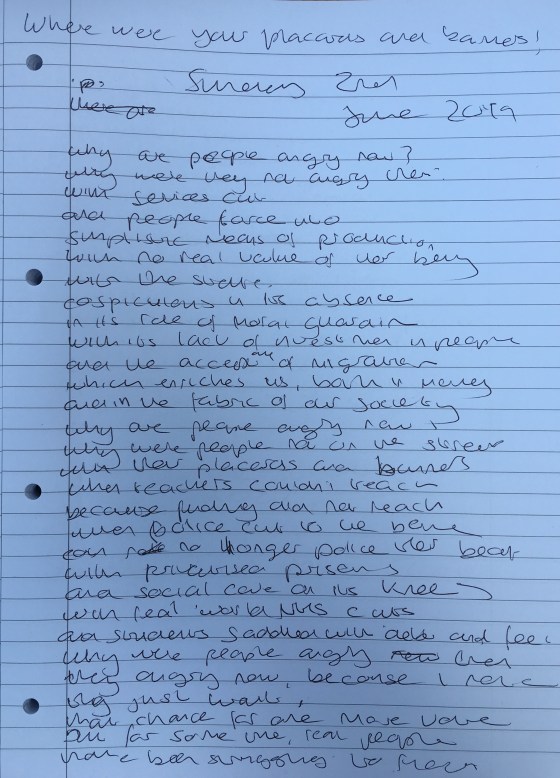 Where were your placards and banners!
Sunday 2nd
there are
June 2019
why are people angry now?
why were they not angry then.
with services cut
and people force into
simplistic means of production,
with no real value of their being
with the state.
cospiculous in its absence
in its role of moral guardain
with its lack of investmen in people
and the acceptance of migration
which enriches us, both in money
and in the fabric of our society
why are people angry now
why were people not on the street
with their placards and banners
when teachers couldn't teach
because funding did not reach
when police cut to the bone
can no longer police their beat
with privitised prisons
and social care on its knees
with real world NHS cuts
and students saddled with debt and fees
why were people angry then
angry now, because I have
just
that chance for one more vote
but for some the, real people
have been struggling to